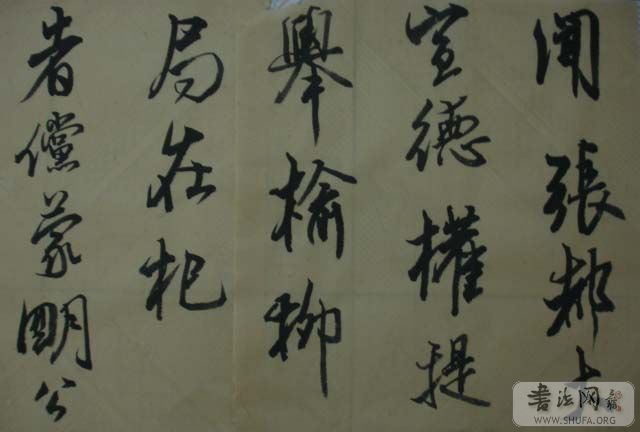 聞張都大
宣德權提
舉榆柳
局在杞
者儻蒙明公
書法网
WWW.SHUFA.ORG